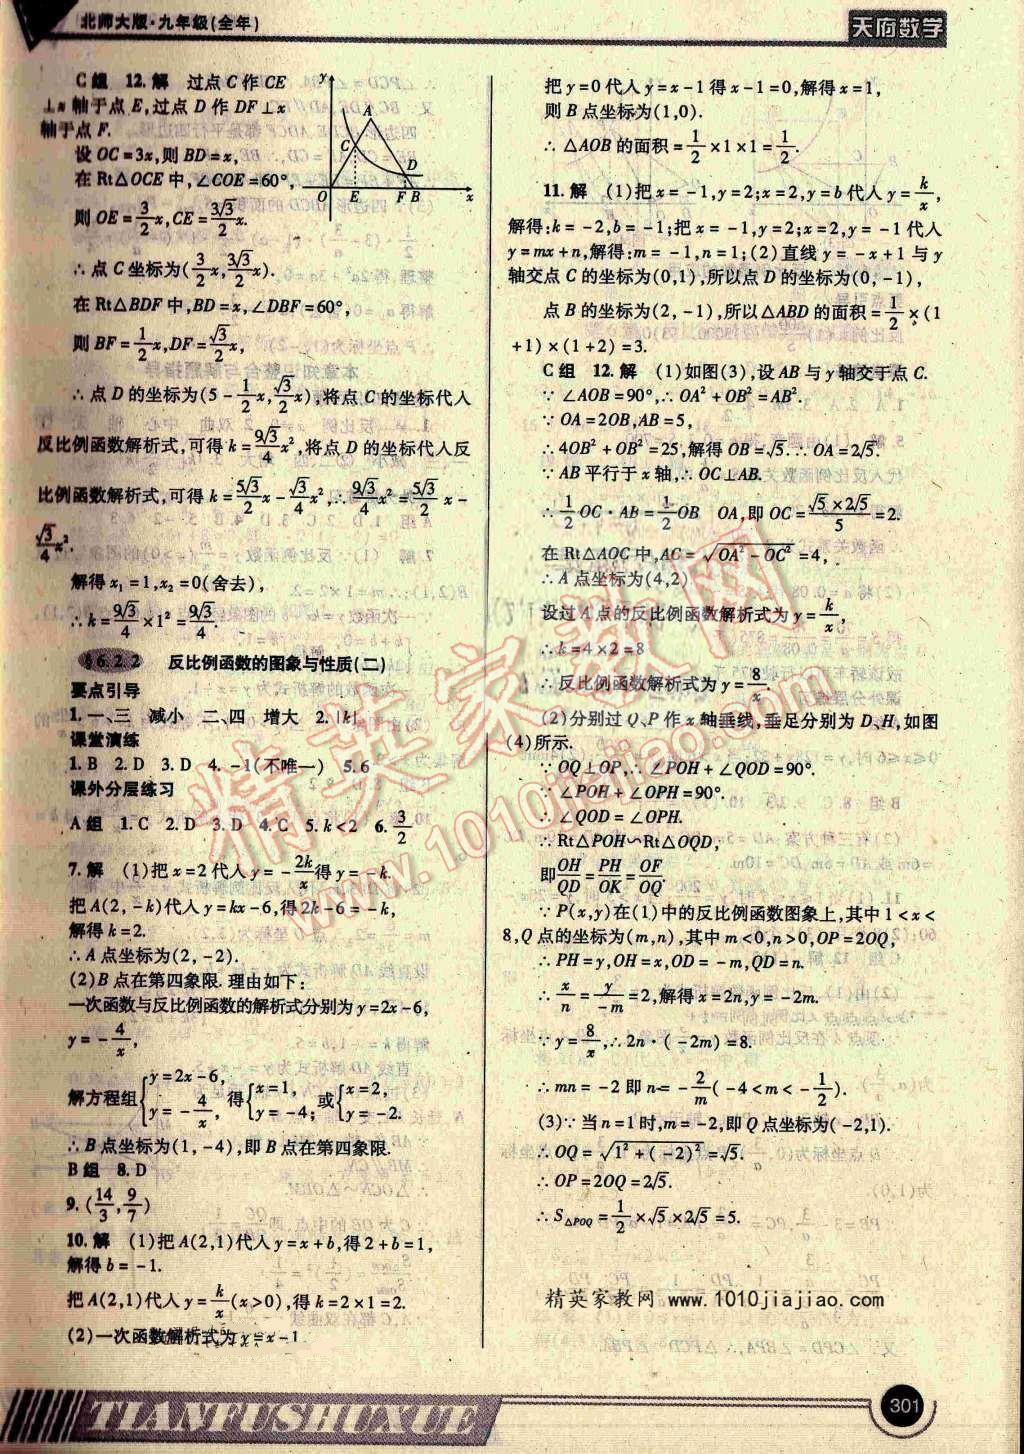 北师大版·九年级(全年)
天府数学
C组 12.解 过点C作CE
⊥x轴于点E,过点D作DF⊥x
轴于点F.
设OC=3x,则BD=x,
在Rt△OCE中,∠COE=60°,
则OE=3/2x,CE=3√3/2x.
∴点C坐标为(3/2x,3√3/2x).
在Rt△BDF中,BD=x,∠DBF=60°,
则BF=1/2x,DF=√3/2x,
∴点D的坐标为(5-1/2x,√3/2x),将点C的坐标代入
反比例函数解析式,可得k=9√3/4x²,将点D的坐标代入反
比例函数解析式,可得k=5√3/2x-√3/4x²,∴9√3/4x²=5√3/2x-
√3/4x²,
解得x₁=1,x₂=0(舍去),
∴k=9√3/4×1²=9√3/4.
y A C D O E F B x
§6.2.2 反比例函数的图象与性质(二)
要点引导
1.一、三 减小 二、四 增大 2.|k|
课堂演练
1.B 2.D 3.D 4.-1(不唯一) 5.6
课外分层练习
A组 1.C 2.D 3.D 4.C 5.k<2 6.3/2
7.解 (1)把x=2代人y=-2k/x得y=-k.
把A(2,-k)代人y=kx-6,得2k-6=-k,
解得k=2.
∴A点坐标为(2,-2).
(2)B点在第四象限.理由如下:
一次函数与反比例函数的解析式分别为y=2x-6,
y=-4/x,
解方程组{y=2x-6, y=-4/x, 得{x=1, y=-4; 或{x=2, y=-2.
∴B点坐标为(1,-4),即B点在第四象限.
B组 8.D
9.(14/3,9/7)
10.解 (1)把A(2,1)代人y=x+b,得2+b=1,
解得b=-1.
把A(2,1)代人y=k/x(x>0),得k=1×2=2.
(2)一次函数解析式为y=x-1
把y=0代人y=x-1得x-1=0,解得x=1,
则B点坐标为(1,0).
∴△AOB的面积=1/2×1×1=1/2.
11.解 (1)把x=-1,y=2;x=2,y=b代人y=k/x,
解得:k=-2,b=-1;把x=-1,y=2;x=2,y=-1代人
y=mx+n,解得:m=-1,n=1;(2)直线y=-x+1与y
轴交点C的坐标为(0,1),所以点D的坐标为(0,-1),
点B的坐标为(2,-1),所以△ABD的面积=1/2×(1
+1)×(1+2)=3.
C组 12.解 (1)如图(3),设AB与y轴交于点C.
∵∠AOB=90°,∴OA²+OB²=AB².
∵OA=2OB,AB=5,
∴4OB²+OB²=25,解得OB=√5.∴OA=2√5.
∵AB平行于x轴,∴OC⊥AB.
∴1/2OC·AB=1/2OB OA,即OC=√5×2√5/5=2.
在Rt△AOC中,AC=√OA²-OC²=4,
∴A点坐标为(4,2)
设过A点的反比例函数解析式为y=k/x,
∴k=4×2=8
∴反比例函数解析式为y=8/x.
(2)分别过Q、P作x轴垂线,垂足分别为D、H,如图
(4)所示.
∵OQ⊥OP,∴∠POH+∠QOD=90°.
∵∠POH+∠OPH=90°.
∴∠QOD=∠OPH.
∴Rt△POH∽Rt△OQD,
即OH/QD=PH/OK=OF/OQ.
∵P(x,y)在(1)中的反比例函数图象上,其中1<x<
8,Q点的坐标为(m,n),其中m<0,n>0,OP=2OQ,
∴PH=y,OH=x,OD=-m,QD=n.
∴x/n=y/-m=2,解得x=2n,y=-2m.
∵y=8/x,∴2n·(-2m)=8.
∴mn=-2即n=-2/m(-4<m<-1/2).
(3)∵当n=1时,m=-2,即Q点坐标为(-2,1).
∴OQ=√1²+(-2)²=√5.
∴OP=2OQ=2√5.
∴S△POQ=1/2×√5×2√5=5.
精英家教网 www.1010jiajiao.com
TIANFUSHUXUE
301